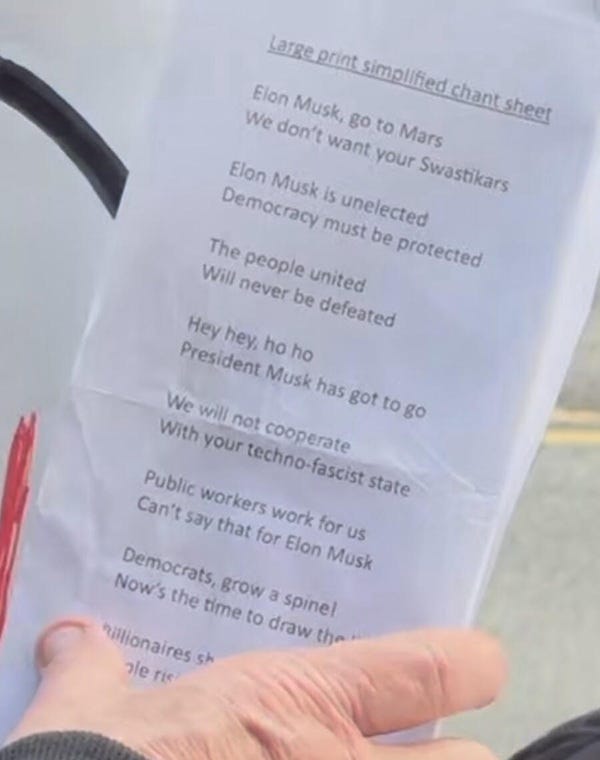 Large print simplified chant sheet
Elon Musk, go to Mars
We don't want your Swastikars
Elon Musk is unelected
Democracy must be protected
The people united
Will never be defeated
Hey hey, ho ho
President Musk has got to go
We will not cooperate
With your techno-fascist state
Public workers work for us
Can't say that for Elon Musk
Democrats, grow a spine!
Now's the time to draw the